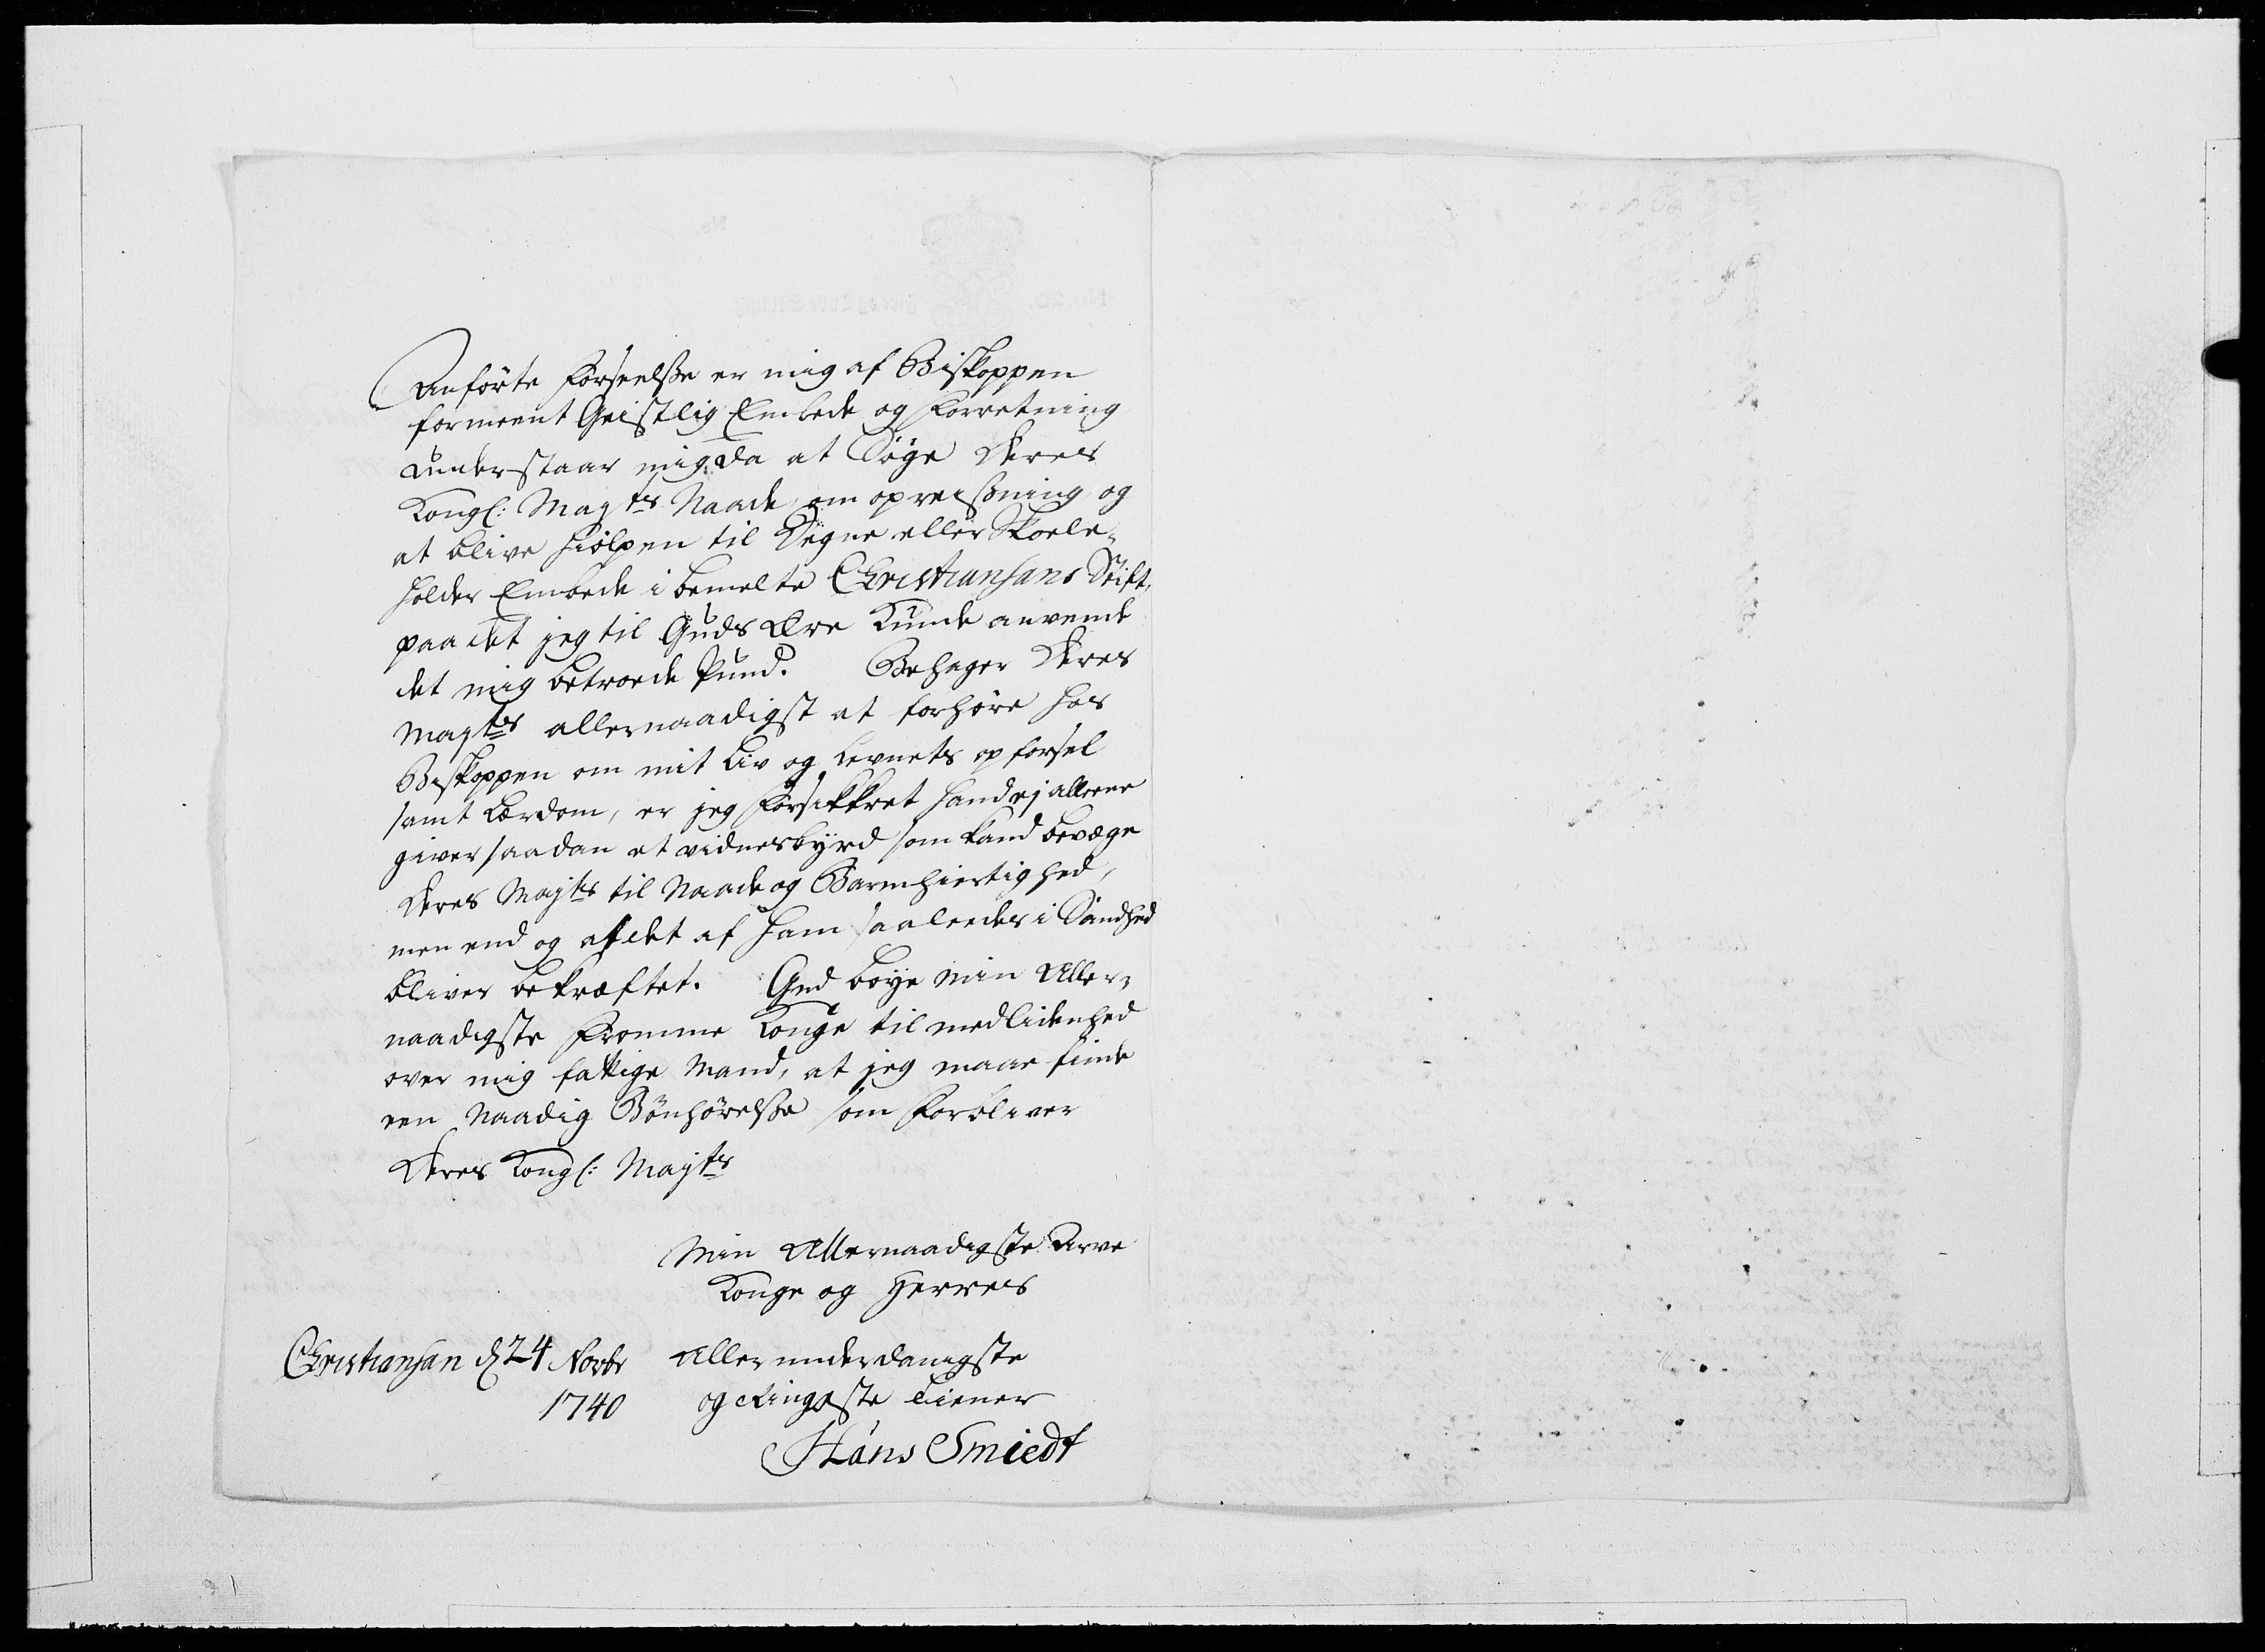 Anførte Forseelsse er mig af Biskoppen
formeent Geistlig Embede og Forretning
understaar mig da at Søge Deres
Kongl: Majts Naade om opreisning og
at blive hiølpen til Degne eller Skole-
holder Embede i bemelte Christiansans Stift,
paa det jeg til Guds Ære Kunde anvende
det mig betroede Pund. Behager Deres
Majts allernaadigst at forhøre hos
Biskoppen om mit Liv og Levnets opførsel
samt Lærdom, er jeg Forsikkret hand ej alleene
giver saadan et vidnesbyrd som kand bevæge
Deres Majts til Naade og Barmhiertighed,
men end og at det af ham saaleedes i Sandhed
bliver bekræftet. Gud bøye min Aller-
naadigste Fromme Konge til medlidenhed
over mig fattige Mand, at jeg maae finde
een Naadig Bønhørelsse som Forbliver
Deres Kongl: Majts
Min Allernaadigste Arve
Konge og Herres
Christiansan d 24 Novbr Allerunderdanigste
1740 og Ringeste Tiener
Hans Smiedt